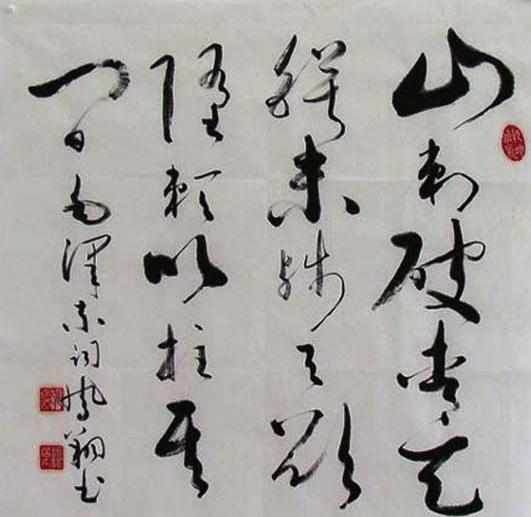 山刺破青天
锷未残天欲
堕赖以拄其
间毛泽东词凤翔书